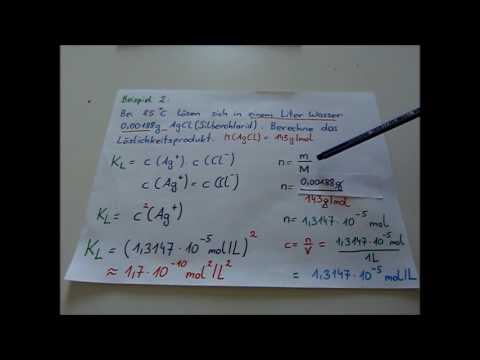 Beispiel 2:
Bei 25°C lösen sich in einem Liter Wasser
0,00188g AgCl (Silberchlorid). Berechne das
Löslichkeitsprodukt. M(AgCl) = 143g/mol
K_L = c(Ag⁺) · c(Cl⁻)
c(Ag⁺) = c(Cl⁻)
K_L = c²(Ag⁺)
K_L = (1,3147 · 10⁻⁵ mol/L)²
≈ 1,7 · 10⁻¹⁰ mol²/L²
n = m/M
n = 0,00188g/143g/mol
n = 1,3147 · 10⁻⁵ mol
c = n/V = 1,3147 · 10⁻⁵ mol/1L
= 1,3147 · 10⁻⁵ mol/L